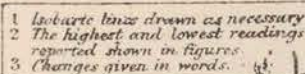 1 Isobaric lines drawn as necessary
2 The highest and lowest readings
reported shown in figures.
3 Changes given in words.